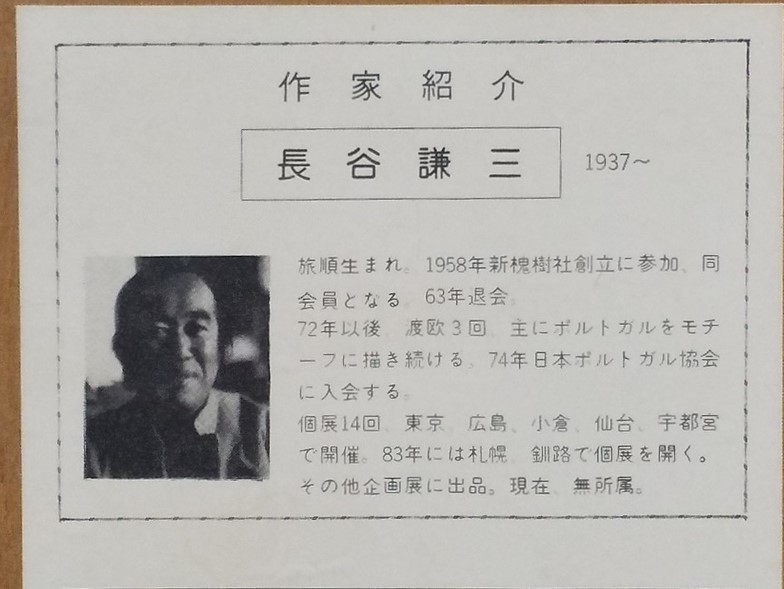 作家紹介
長谷謙三 1937~
旅順生まれ。1958年新槐樹社創立に参加、同
会員となる。63年退会。
72年以後、渡欧3回。主にポルトガルをモチ
ーフに描き続ける。74年日本ポルトガル協会
に入会する。
個展14回、東京、広島、小倉、仙台、宇都宮
で開催。83年には札幌、釧路で個展を開く。
その他企画展に出品。現在、無所属。